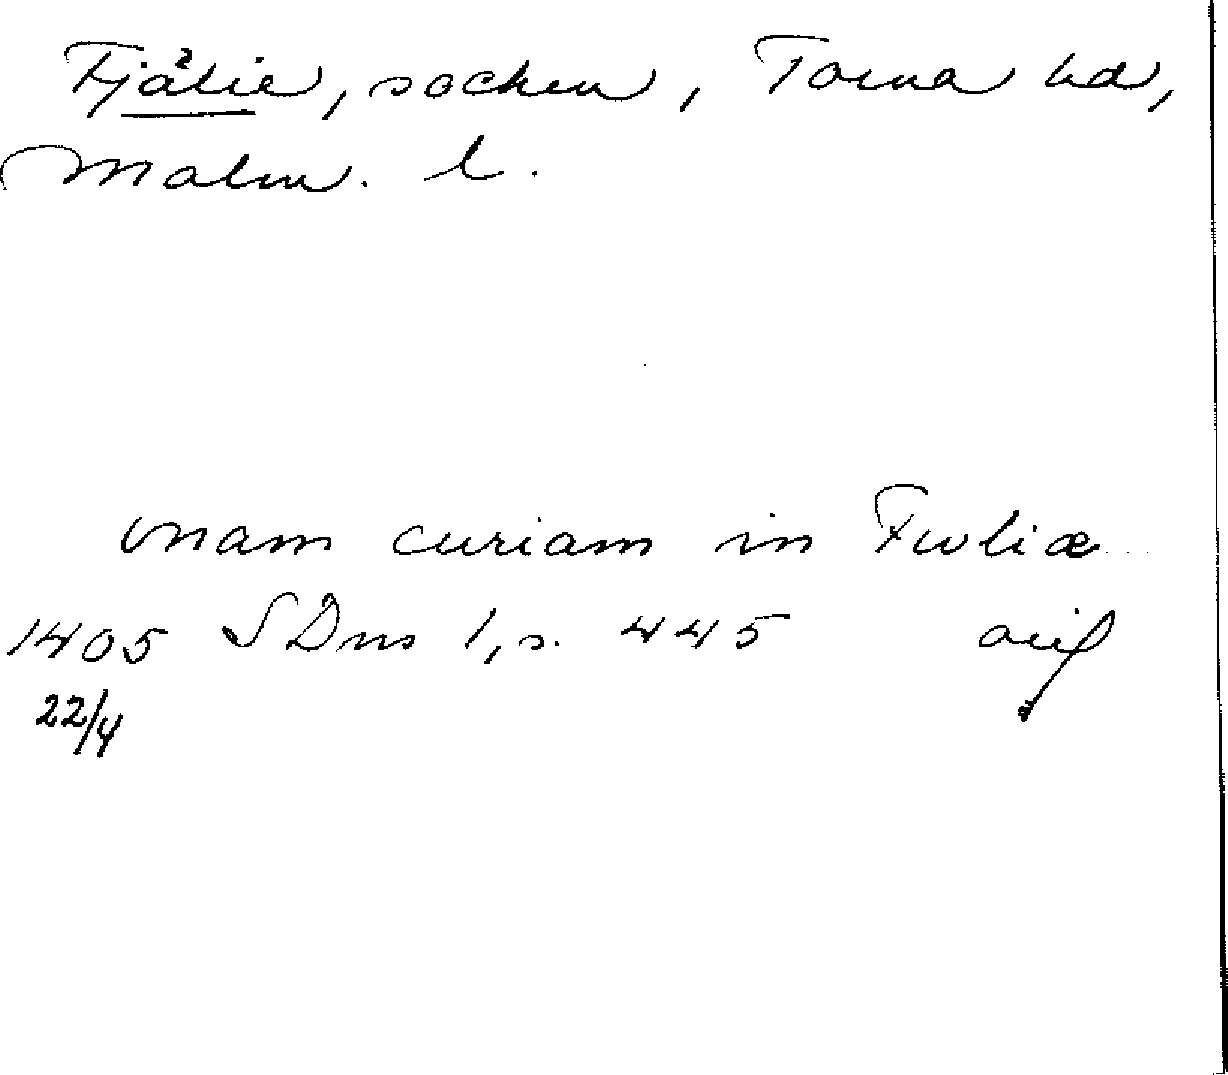 Fjälie, socken, Torna hd,
Malm. l.
vnam curiam in Fwliæ
1405 SDns 1, s. 445
22/4